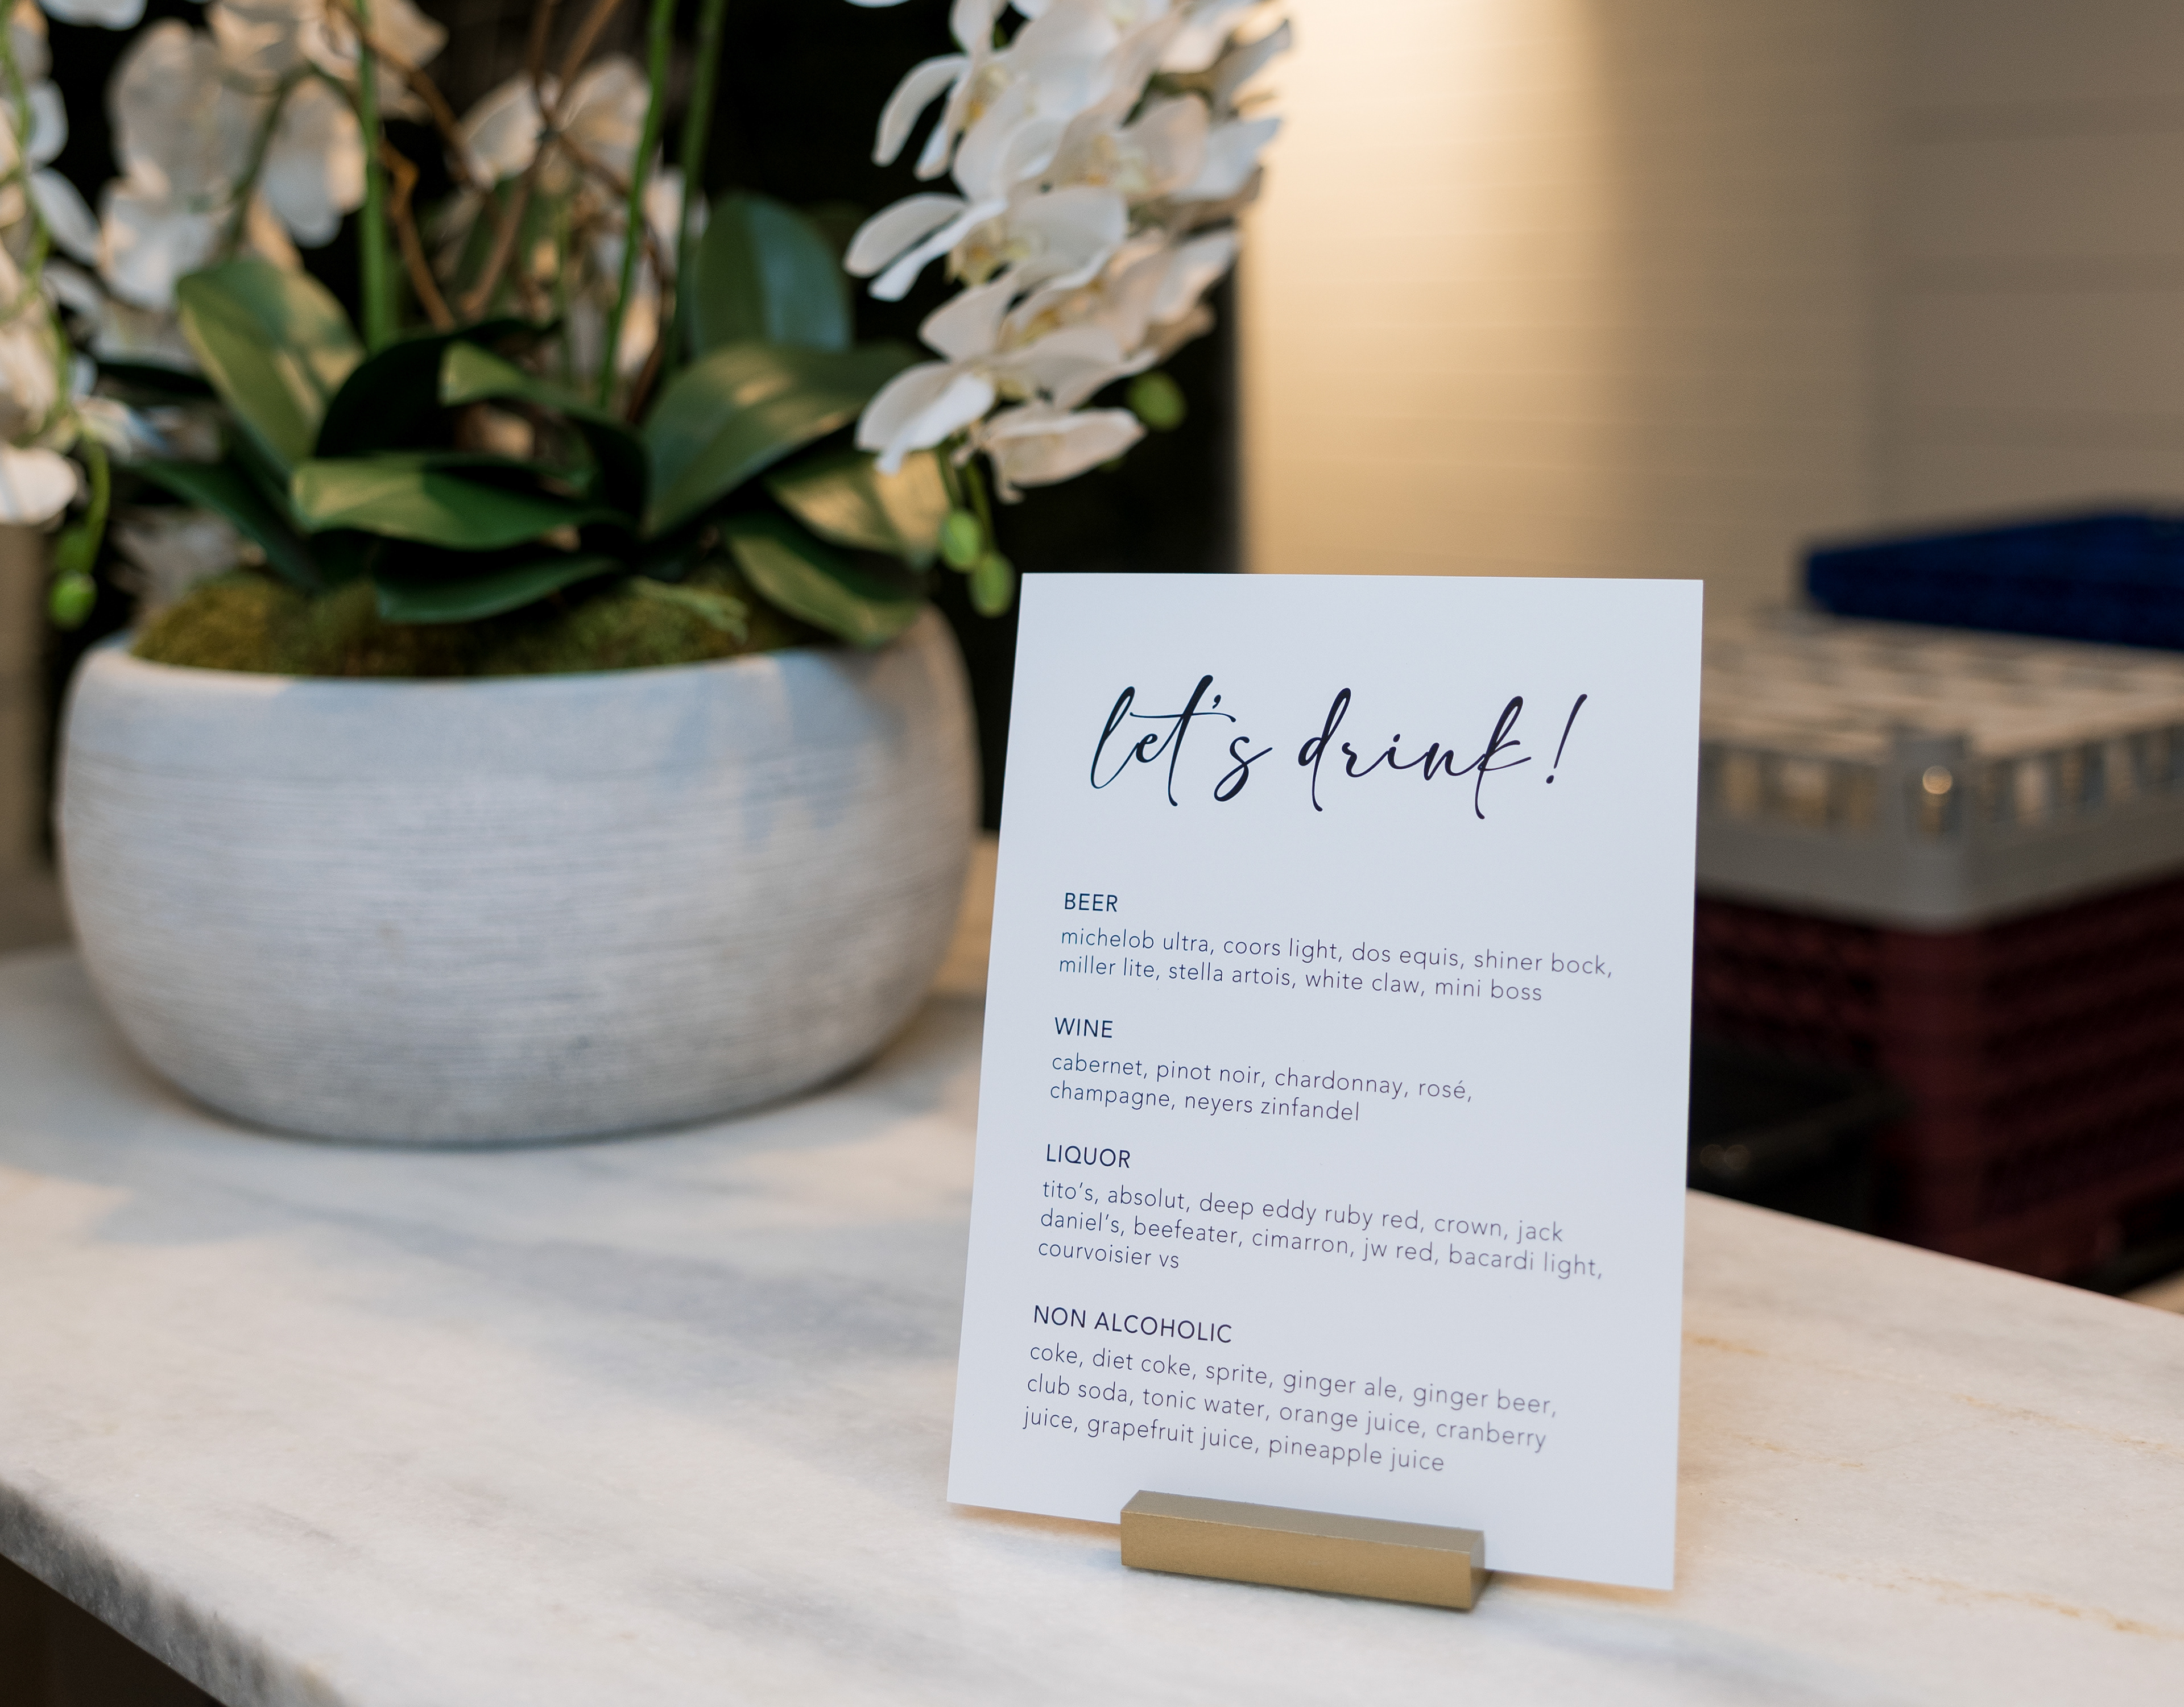 let's drink!
BEER
michelob ultra, coors light, dos equis, shiner bock,
miller lite, stella artois, white claw, mini boss
WINE
cabernet, pinot noir, chardonnay, rosé,
champagne, neyers zinfandel
LIQUOR
tito's, absolut, deep eddy ruby red, crown, jack
daniel's, beefeater, cimarron, jw red, bacardi light,
courvoisier vs
NON ALCOHOLIC
coke, diet coke, sprite, ginger ale, ginger beer,
club soda, tonic water, orange juice, cranberry
juice, grapefruit juice, pineapple juice